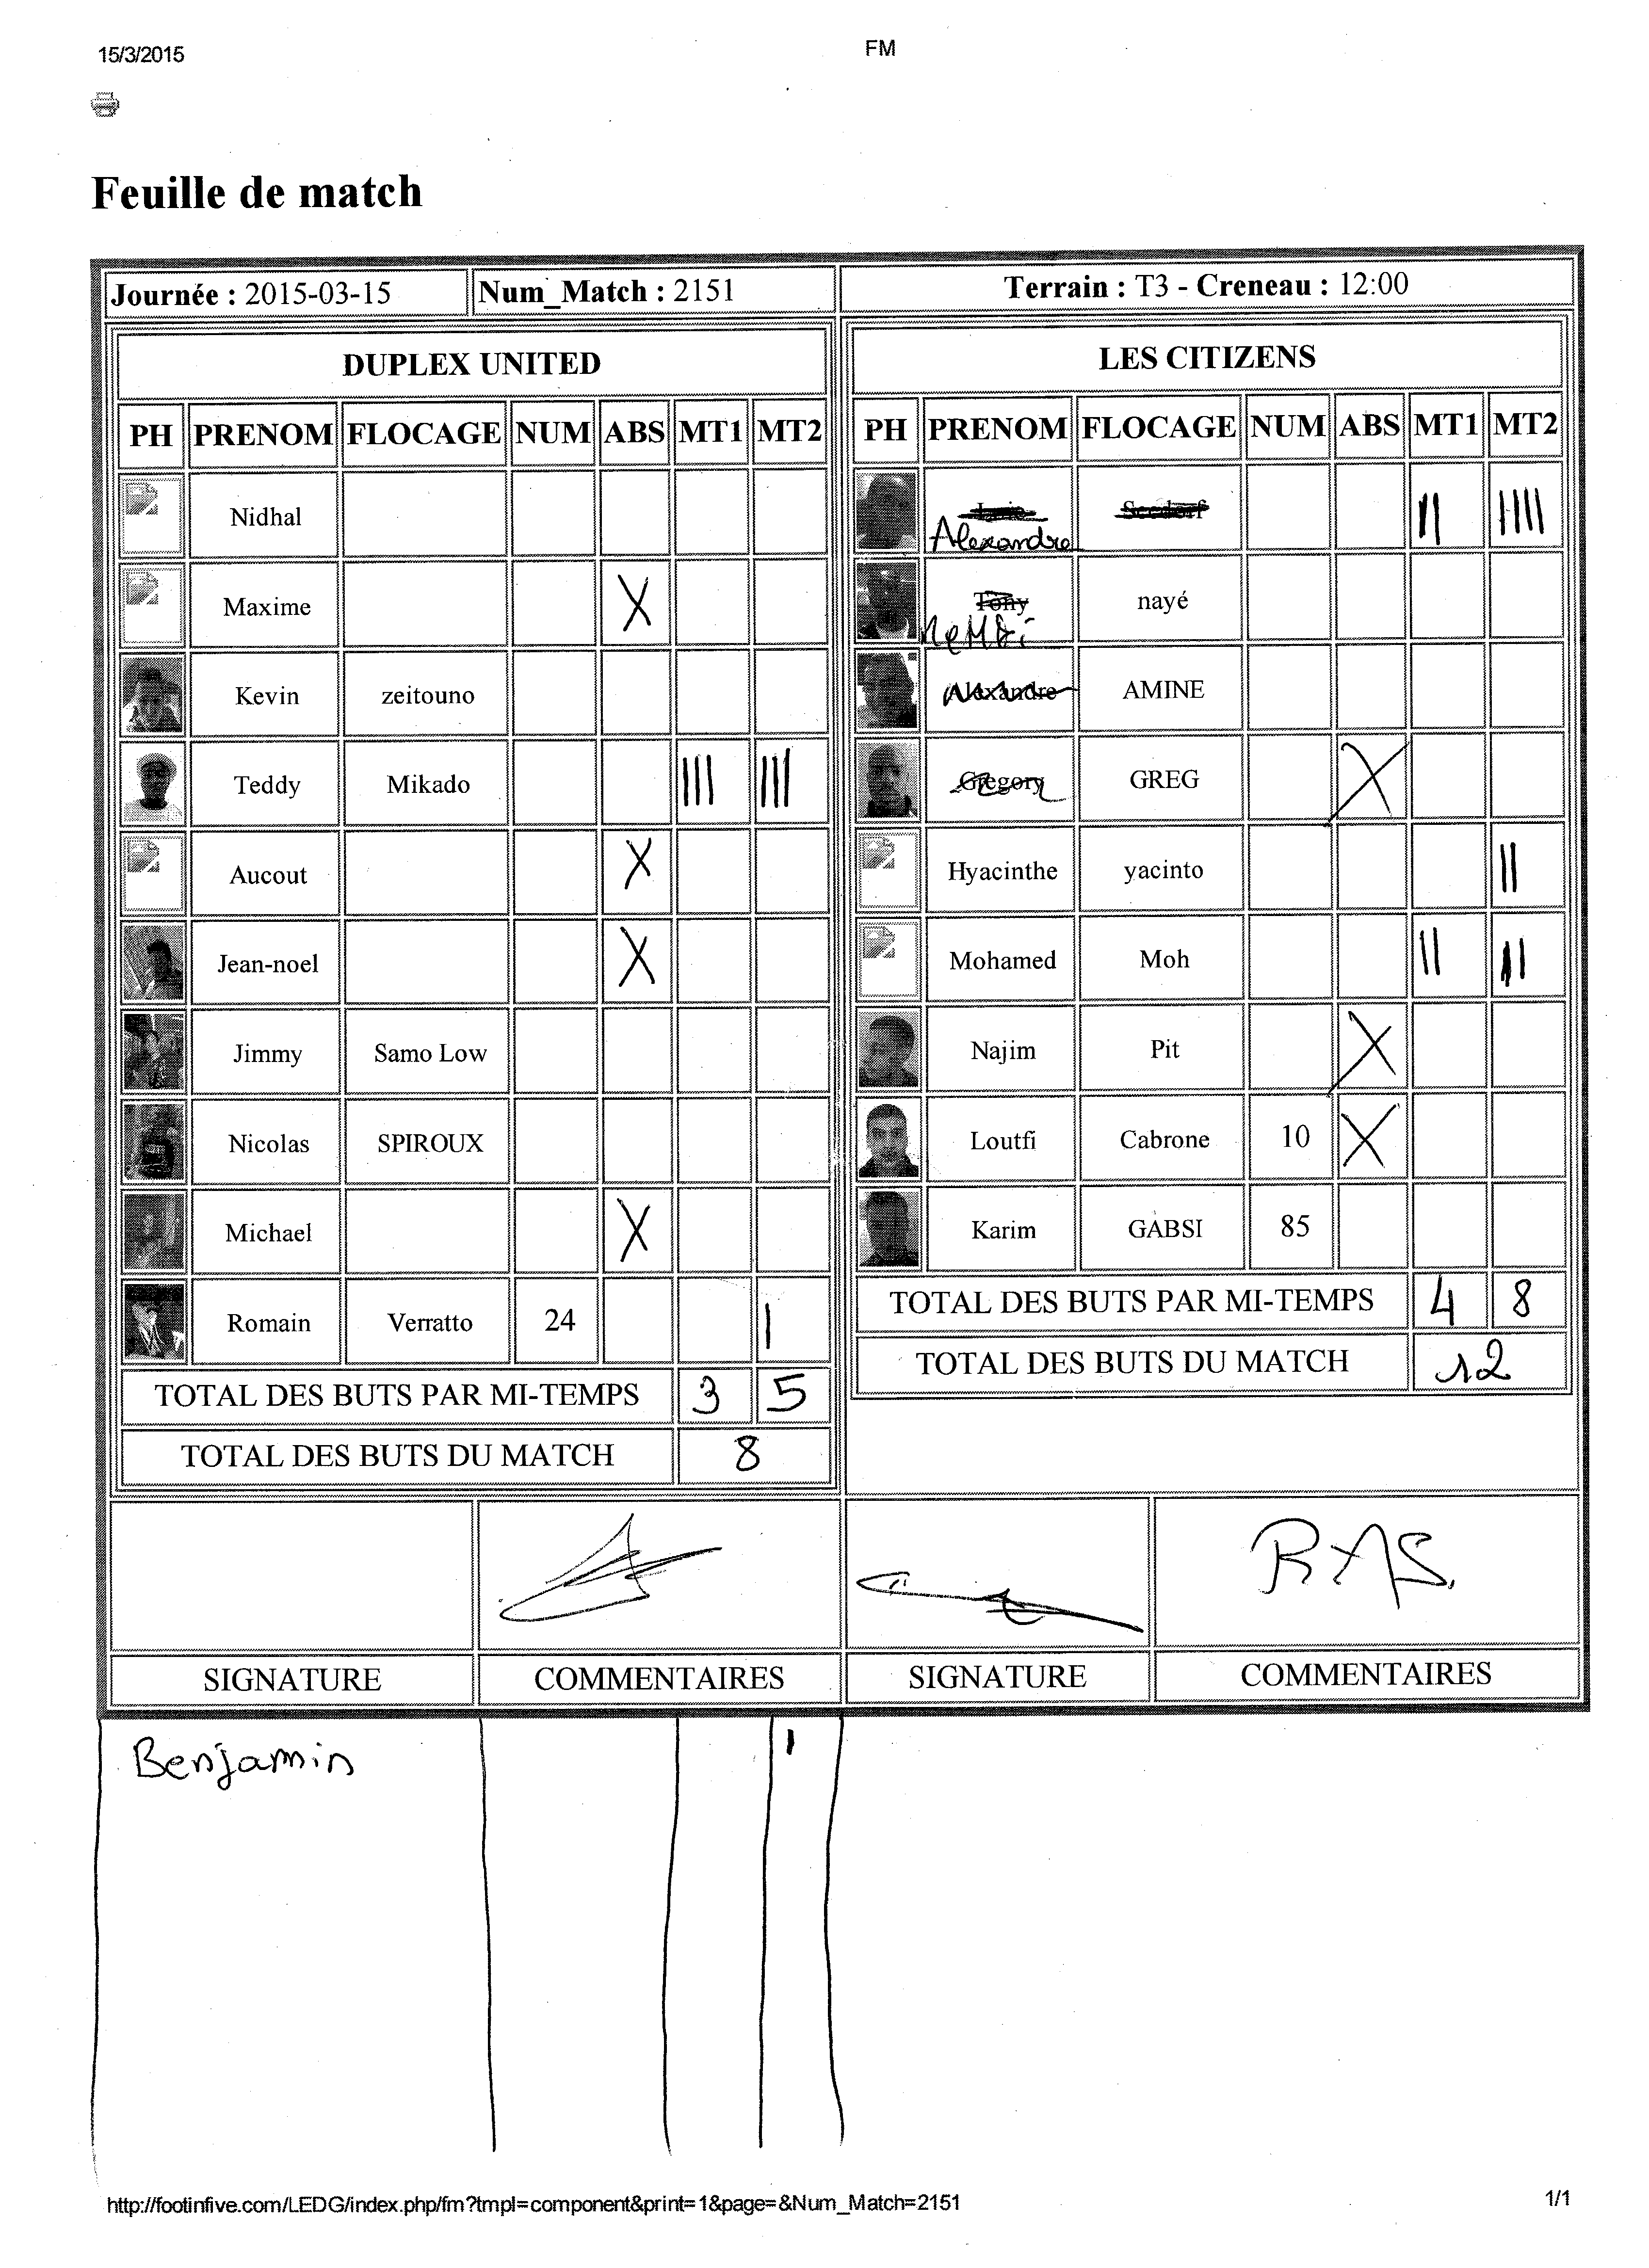 15/3/2015 FM
Feuille de match
Journée : 2015-03-15 Num_Match : 2151 Terrain : T3 - Creneau : 12:00
DUPLEX UNITED
PH PRENOM FLOCAGE NUM ABS MT1 MT2
Nidhal
Maxime X
Kevin zeitouno
Teddy Mikado III III
Aucout X
Jean-noel X
Jimmy Samo Low
Nicolas SPIROUX
Michael X
Romain Verratto 24 I
TOTAL DES BUTS PAR MI-TEMPS 3 5
TOTAL DES BUTS DU MATCH 8
LES CITIZENS
PH PRENOM FLOCAGE NUM ABS MT1 MT2
Seedorf II IIII
Alexandre
Tony nayé
Alexandre AMINE
Gregory GREG X
Hyacinthe yacinto II
Mohamed Moh II II
Najim Pit X
Loutfi Cabrone 10 X
Karim GABSI 85
TOTAL DES BUTS PAR MI-TEMPS 4 8
TOTAL DES BUTS DU MATCH 12
RAS.
SIGNATURE COMMENTAIRES SIGNATURE COMMENTAIRES
Benjamin I
http://footinfive.com/LEDG/index.php/fm?tmpl=component&print=1&page=&Num_Match=2151 1/1